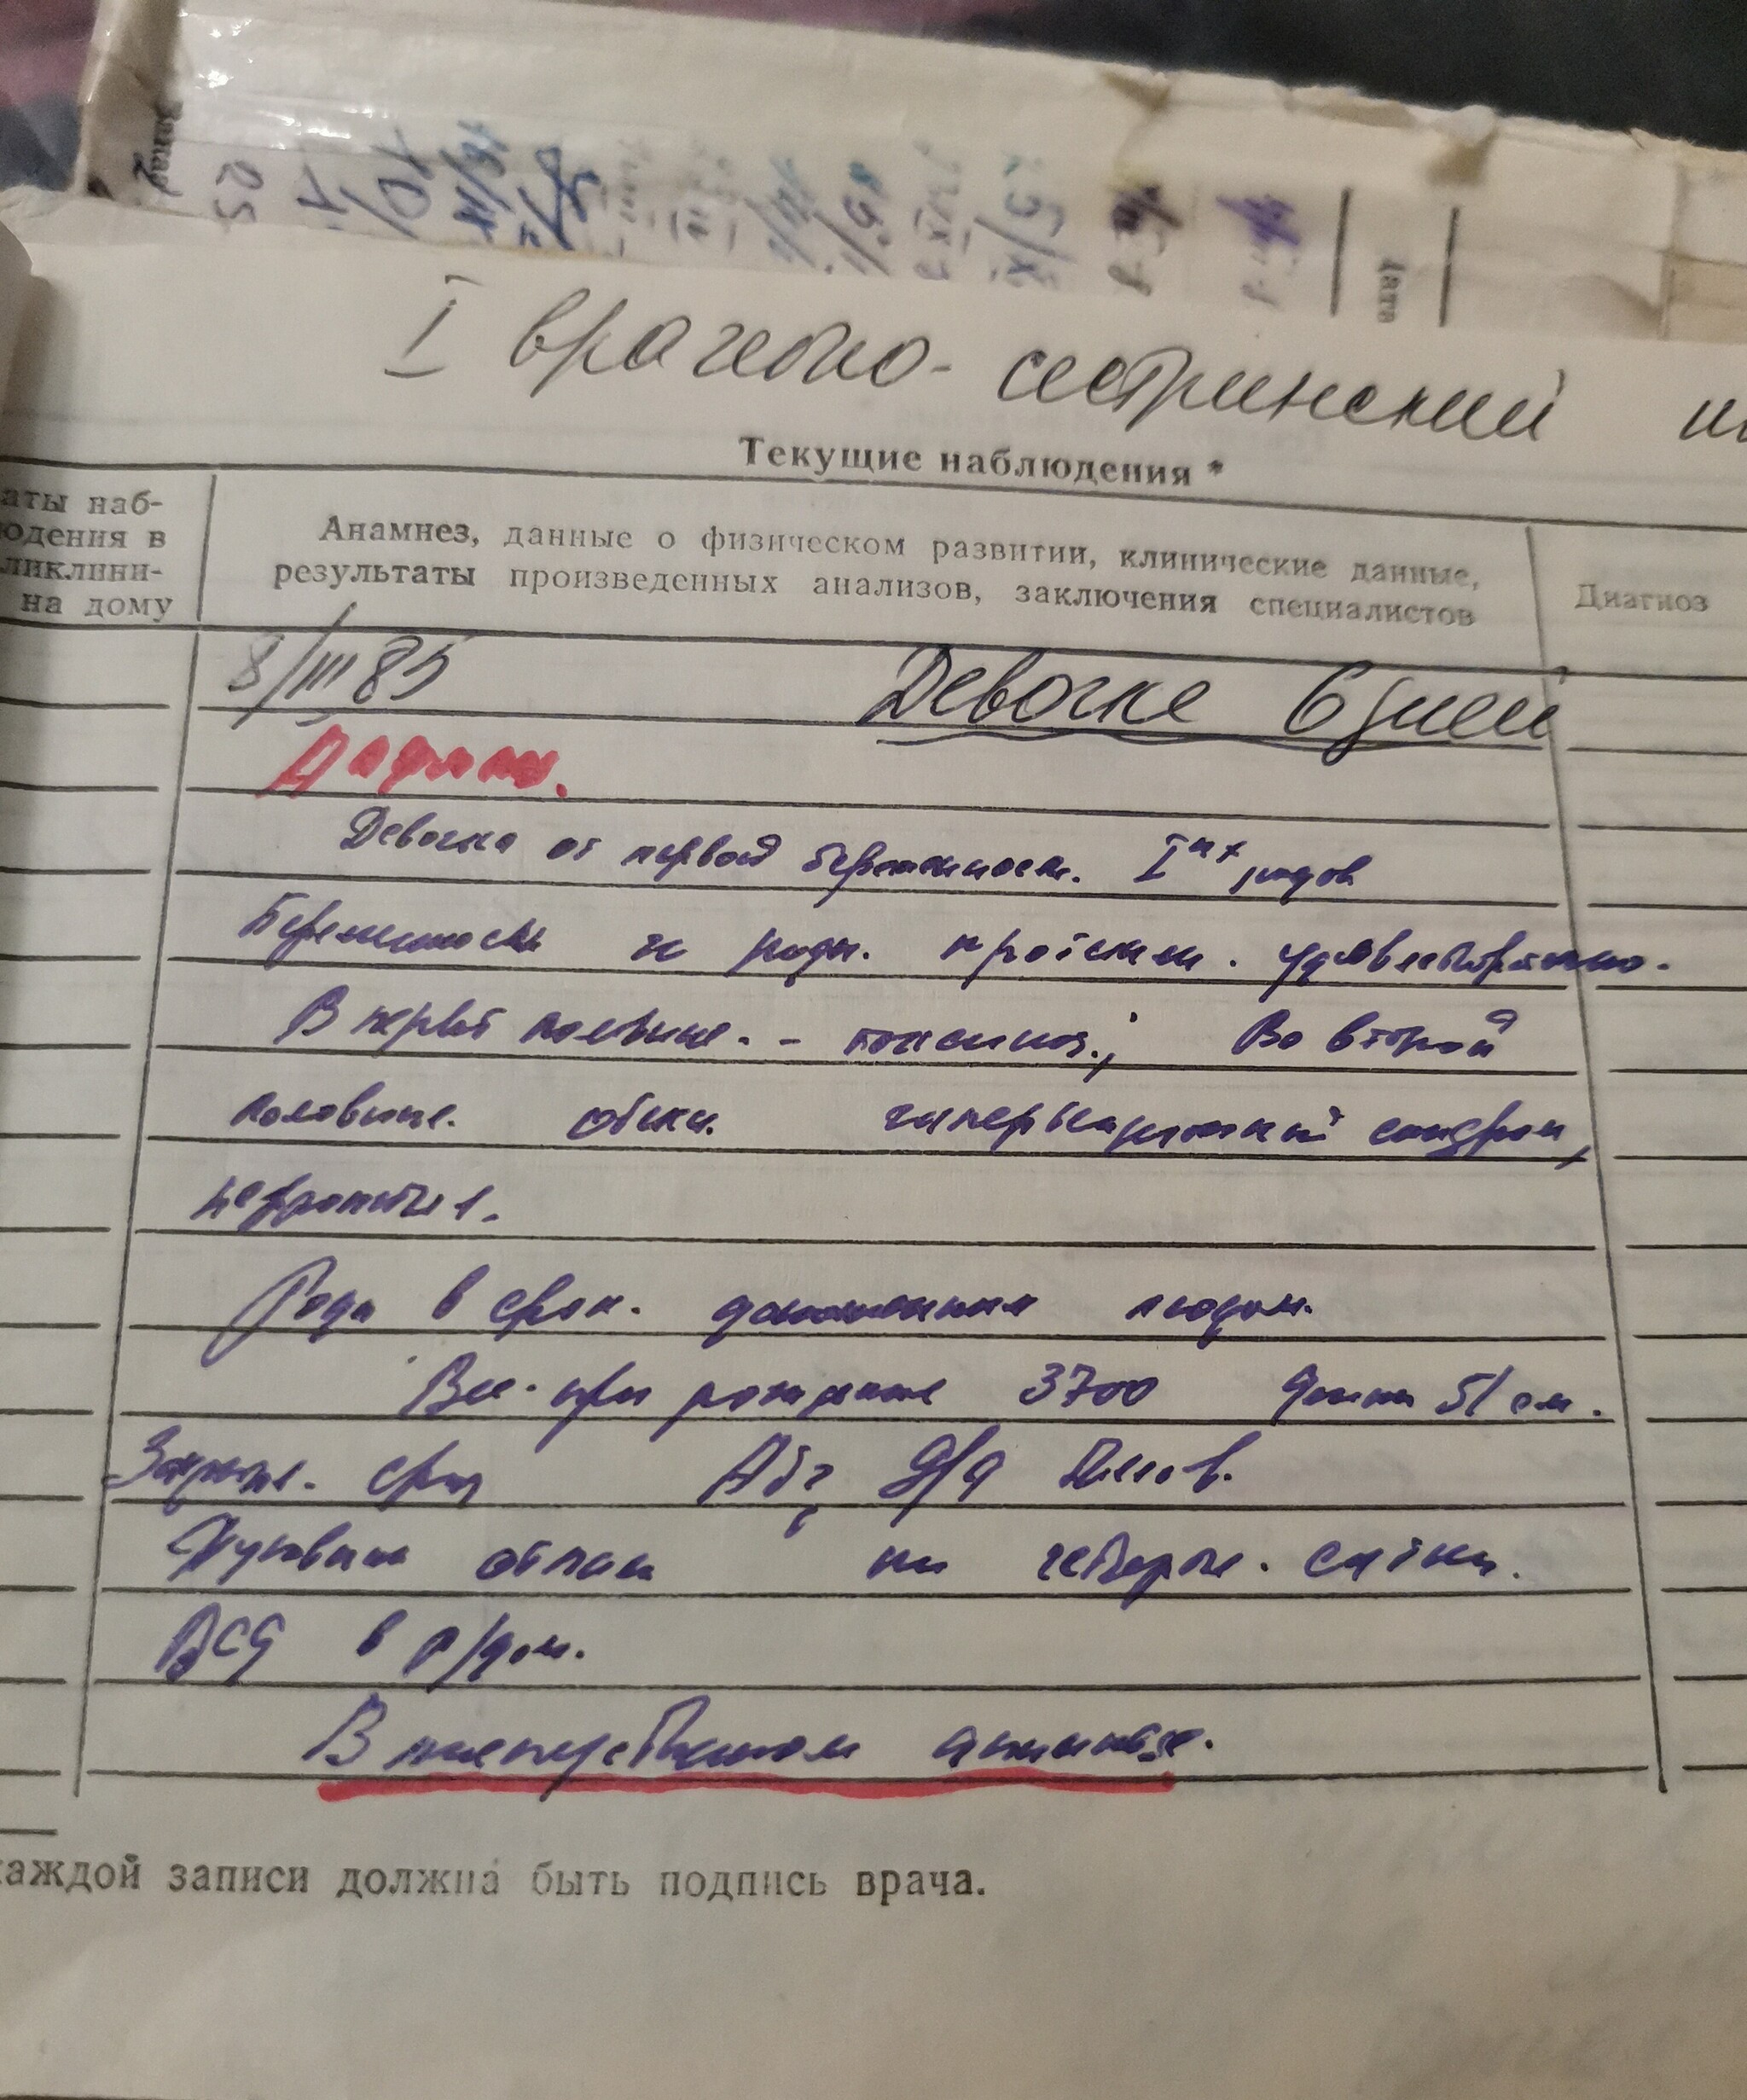 I врачебно-сестринский
Текущие наблюдения *
аты наб-
юдения в
ликлини-
на дому
Анамнез, данные о физическом развитии, клинические данные,
результаты произведенных анализов, заключения специалистов
Диагноз
Дата
8/III 85 Девочке 6 дней
Девочка от первой беременност. I родов
Беременность и роды протекал. удовлетворительно.
В первой половине - токсикоз; Во второй
половине. гипертензионный синдром,
нефропатия.
Роды в срок. доношенным плодом.
Вес при рождении 3700 Длина 51 см.
Закричал. сразу
Пуповина отпала на четверт. сутки.
в р/дом.
В наследственном анамнезе.
каждой записи должна быть подпись врача.